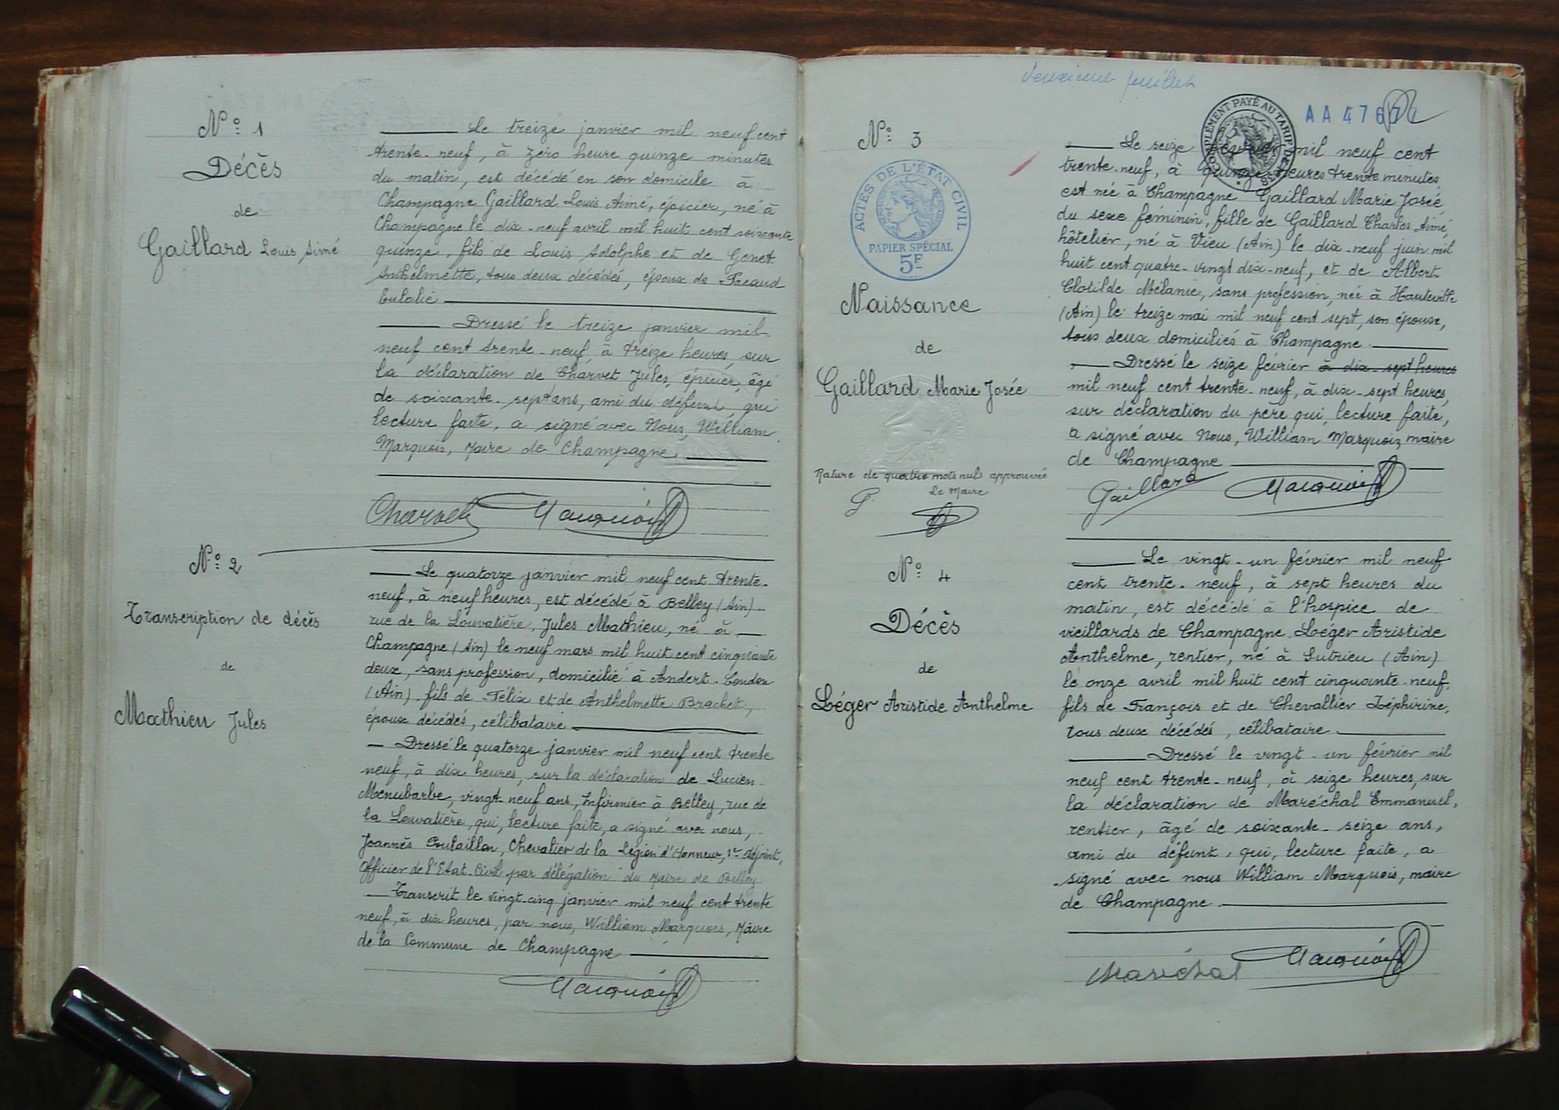 N° 1
Décès
de
Gaillard Louis Aimé
Le treize janvier mil neuf cent
trente-neuf, à zéro heure quinze minutes
du matin, est décédé en son domicile à
Champagne Gaillard Louis Aimé, épicier, né à
Champagne le dix-neuf avril mil huit cent soixante
quinze, fils de Louis Adolphe et de Genet
Anthelmette, tous deux décédés, époux de
Eulalie
Dressé le treize janvier mil
neuf cent trente-neuf, à treize heures, sur
la déclaration de Charvet Jules, épicier, âgé
de soixante-sept ans, ami du défunt, qui
lecture faite, a signé avec Nous, William
Marquois, Maire de Champagne
Charvet Marquois
N° 2
Transcription de décès
de
Mathieu Jules
Le quatorze janvier mil neuf cent trente-
neuf, à neuf heures, est décédé à Belley (Ain)
rue de la Louvatière, Jules Mathieu, né à
Champagne (Ain) le neuf mars mil huit cent cinquante
deux, sans profession, domicilié à Andert-Condon
(Ain) fils de Félix et de Anthelmette Brachet,
époux décédés, célibataire
Dressé le quatorze janvier mil neuf cent trente
neuf, à dix heures, sur la déclaration de Lucien
Menubarbe, vingt-neuf ans, Infirmier à Belley, rue de
la Louvatière, qui, lecture faite, a signé avec nous,
Joannès Chevalier de la Légion d'Honneur, 1er Adjoint,
Officier de l'Etat-Civil par délégation du Maire de Belley
Transcrit le vingt-cinq janvier mil neuf cent trente
neuf, à dix heures, par nous, William Marquois, Maire
de la Commune de Champagne
Marquois
deuxième feuillet
COMPLÉMENT PAYÉ AU TARIF DE
AA 47
N° 3
ACTES DE L'ÉTAT CIVIL
PAPIER SPÉCIAL
5F
Naissance
de
Gaillard Marie Josée
Rature de quatre mots nuls approuvée
Le Maire
G
Le seize février mil neuf cent
trente-neuf, à quinze heures trente minutes
est née à Champagne Gaillard Marie Josée
du sexe féminin, fille de Gaillard Charles Aimé,
hôtelier, né à Vieu (Ain) le dix-neuf juin mil
huit cent quatre-vingt dix-neuf, et de Albert
Clotilde Mélanie, sans profession, née à Hauteville
(Ain) le treize mai mil neuf cent sept, son épouse,
tous deux domiciliés à Champagne
Dressé le seize février à dix-sept heures
mil neuf cent trente-neuf, à dix-sept heures,
sur déclaration du père qui, lecture faite,
a signé avec Nous, William Marquois maire
de Champagne
Gaillard Marquois
N° 4
Décès
de
Léger Aristide Anthelme
Le vingt-un février mil neuf
cent trente-neuf, à sept heures du
matin, est décédé à l'hospice de
vieillards de Champagne Léger Aristide
Anthelme, rentier, né à Sutrieu (Ain)
le onze avril mil huit cent cinquante-neuf,
fils de François et de Chevallier Zéphirine,
tous deux décédés, célibataire
Dressé le vingt-un février mil
neuf cent trente-neuf, à seize heures, sur
la déclaration de Maréchal Emmanuel,
rentier, âgé de soixante-seize ans,
ami du défunt, qui, lecture faite, a
signé avec nous William Marquois, maire
de Champagne
Maréchal Marquois